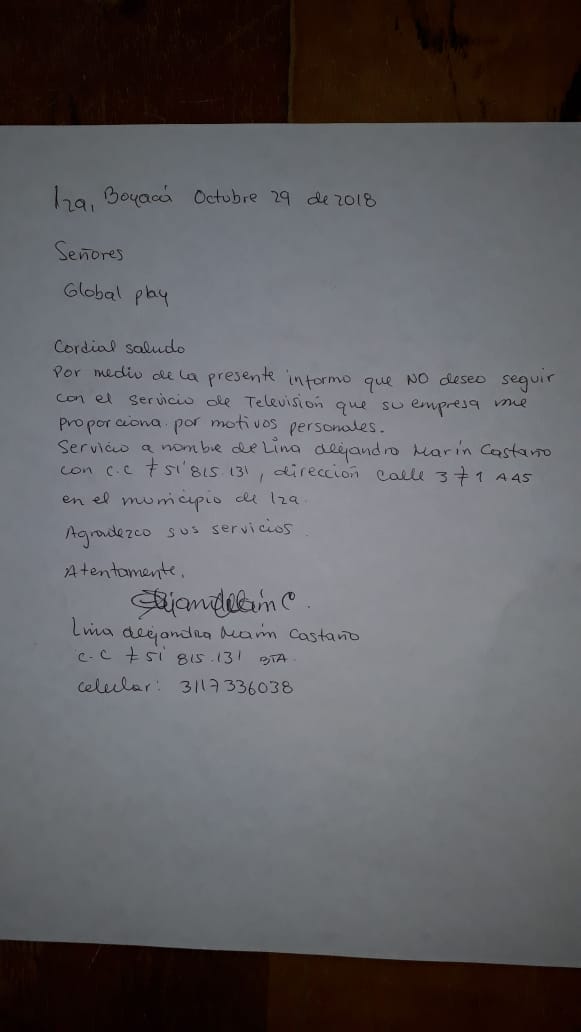 Iza, Boyacá Octubre 29 de 2018
Señores
Global play
Cordial saludo
Por medio de la presente informo que NO deseo seguir
con el servicio de Televisión que su empresa me
proporciona. por motivos personales.
Servicio a nombre de Lina Alejandra Marín Castaño
con c.c # 51'815.131, dirección calle 3 # 1 A45
en el municipio de Iza.
Agradezco sus servicios.
Atentamente,
Lina Alejandra Marín Castaño
c.c # 51'815.131 BTA.
celular: 3117336038